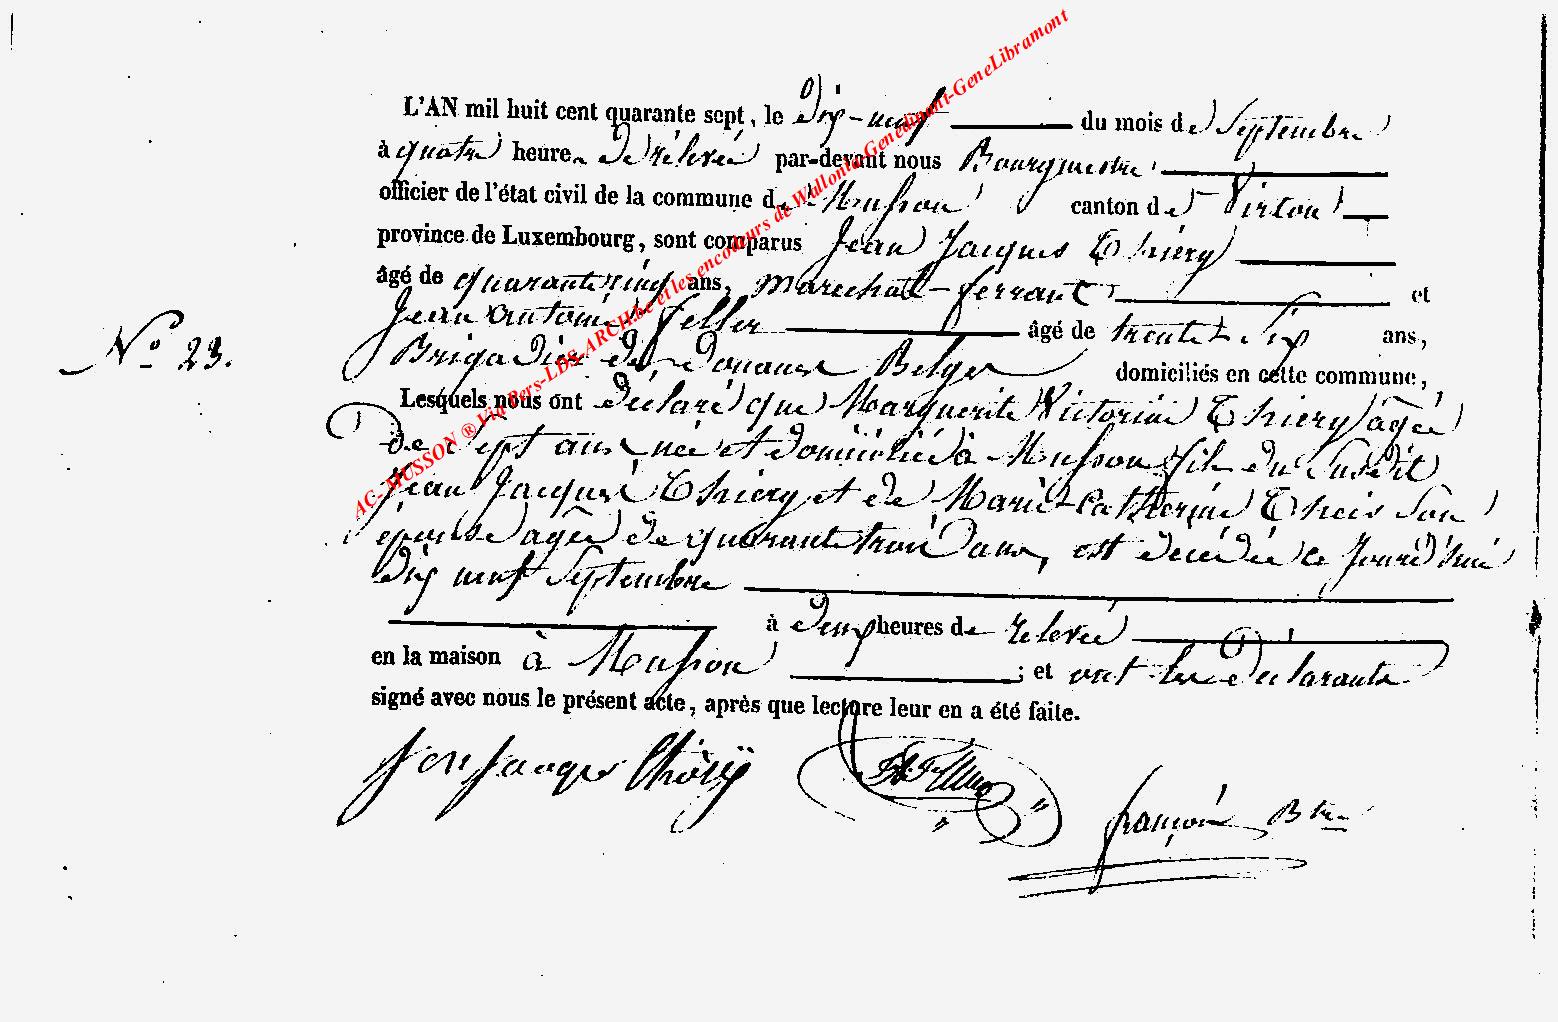 L'AN mil huit cent quarante sept, le dix-neuf du mois de Septembre
à quatre heures de rélévée par-devant nous Bourgmestre
officier de l'état civil de la commune de Musson canton de Virton
province de Luxembourg, sont comparus Jean Jacques Thiery
âgé de quarante cinq ans, marechal-ferrant et
Jean Antoine Feller âgé de trente Six ans,
N° 23.
Brigadier de douanes Belges domiciliés en cette commune,
Lesquels nous ont déclaré que Marguerite Victorine Thiery âgée
de sept ans née et domiciliée à Musson fille du Susdit
Jean Jacques Thiery et de Marie-Catherine Theis Son
épouse agée de quarante trois ans, est décédée ce Jourd'hui
dix neuf Septembre
à deux heures de relevée
en la maison à Musson ; et ont les déclarants
signé avec nous le présent acte, après que lecture leur en a été faite.
Jen Jacque Thiery
françois Btre
AC-MUSSON ® Via Pers-LDS-ARCH.be et les encodeurs de Wallonia-Genedinant-GeneLibramont